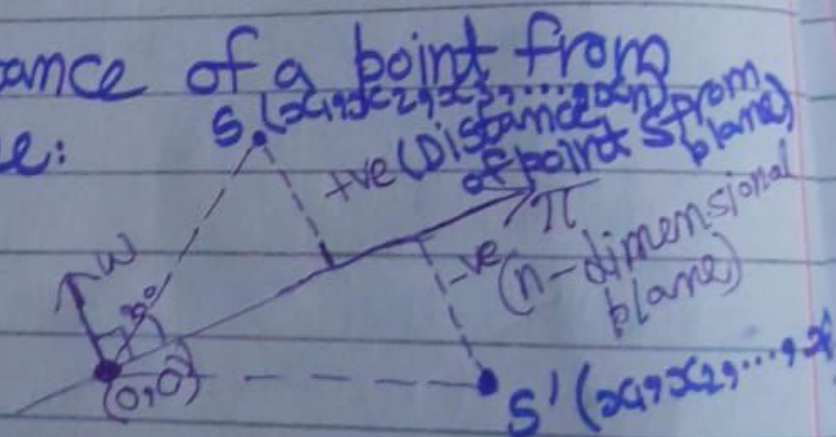 ance of a point from
e:
S (x1, x2, x3, ..., xn)
+ve (Distance
of point S from
plane)
π
-ve
(n-dimensional
plane)
w
90°
(0,0)
S' (x1, x2, ..., x